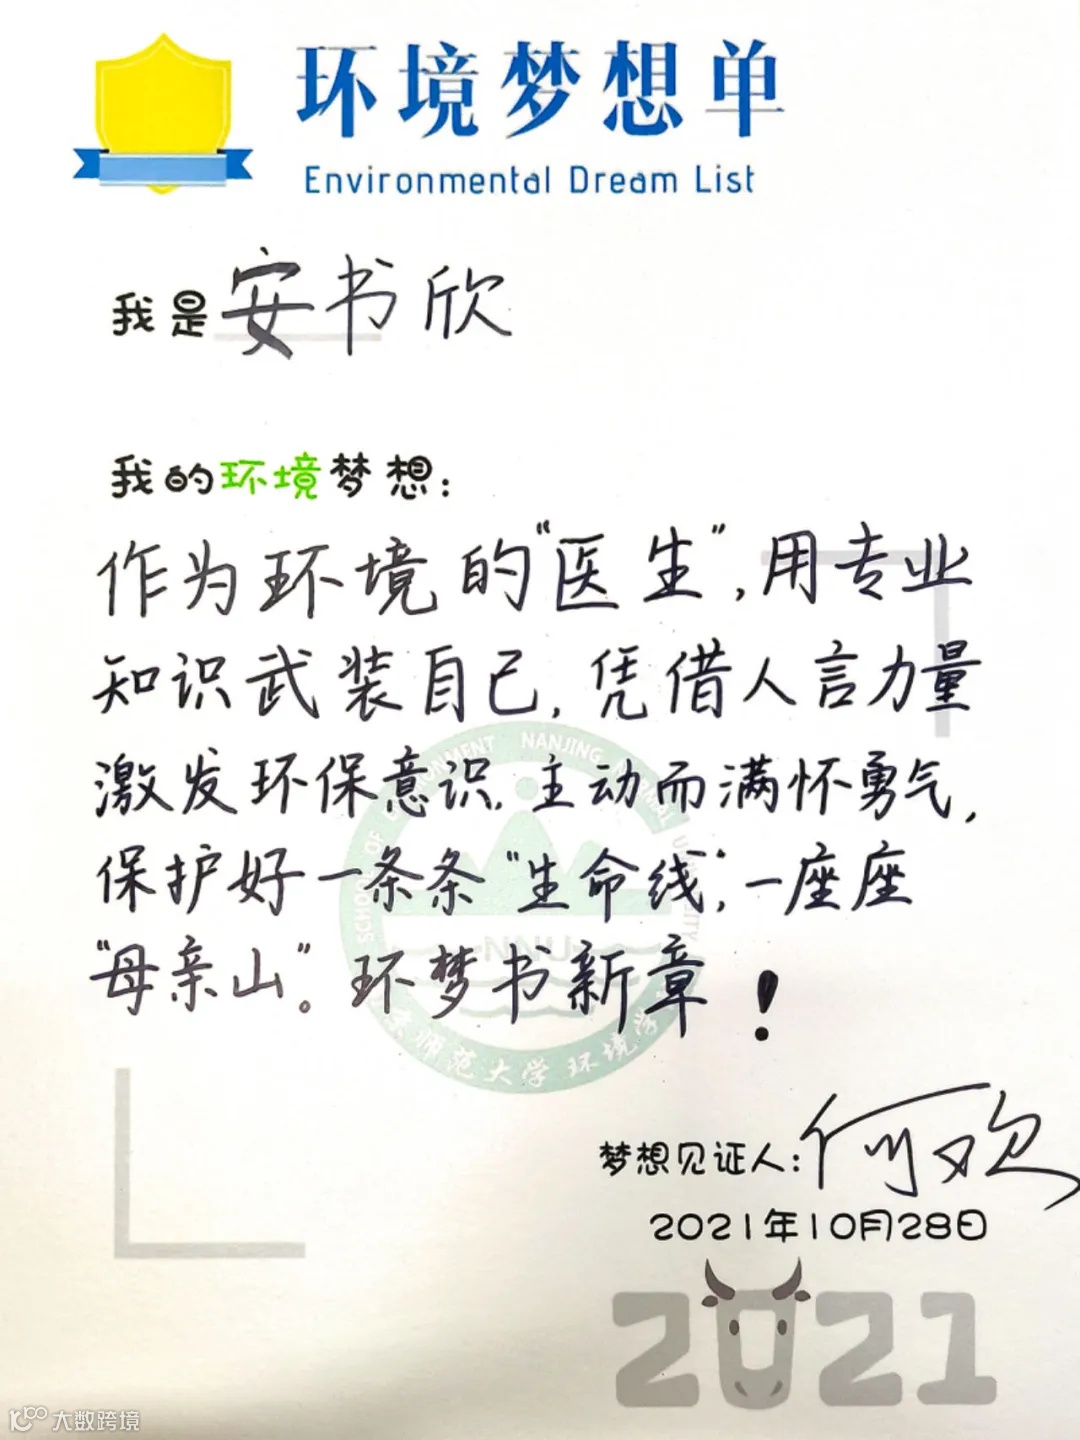 环境梦想单
Environmental Dream List
我是安书欣
我的环境梦想:
作为环境的“医生”,用专业
知识武装自己,凭借人言力量
激发环保意识,主动而满怀勇气,
保护好一条条“生命线”,一座座
“母亲山”。环梦书新章!
SCHOOL OF ENVIRONMENT NANJING NORMAL UNIVERSITY
NNU
京师范大学环境学
梦想见证人:何欢
2021年10月28日
2021
大数跨境